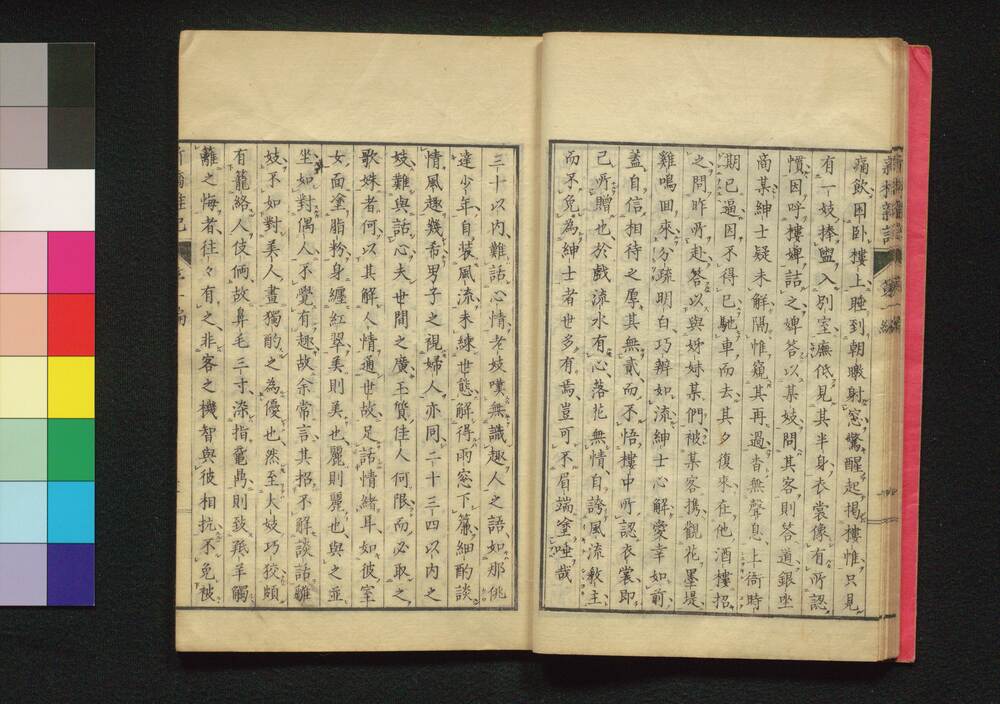 痛飲因臥樓上睡到朝暾射窓驚醒起揭樓帷只見
有一妓捧盥入別室廡低見其半身衣裳像有所認
慣因呼樓婢詰之婢答以某妓問其客則答道銀坐
商某紳士疑未解隔帷窺其再過杳無聲息上衙時
期已逼因不得已馳車而去其夕復來在他酒樓招
之問昨所赴答以與姊妹某們被某客携觀花墨堤
雞鳴回來分疏明白巧辨如流紳士心解愛幸如前
蓋自信相待之厚其無貳而不悟樓中所認衣裳即
己所贈也於戲流水有心落花無情自誇風流教主
而不免為紳士者世多有焉豈可不眉端塗唾哉
三十以内難話心情老妓嘆無識趣人之語如那佻
達少年自装風流未練世態解得雨窓下簾細酌談
情風趣幾希男子之視婦人亦同二十三四以内之
妓難與話心夫世間之廣玉質佳人何限而必取之
歌妹者何以其解人情通世故足話情緒耳如彼室
女面塗脂粉身纏紅翠美則美也麗則麗也與之並
坐如對偶人不覺有趣故余常言其招不解談話雛
妓不如對美人畫獨酌之為優也然至大妓巧狡頗
有籠絡人伎倆故鼻毛三寸染指鼋鼎則致羝羊觸
籬之悔者往々有之非客之機智與彼相抗不免被